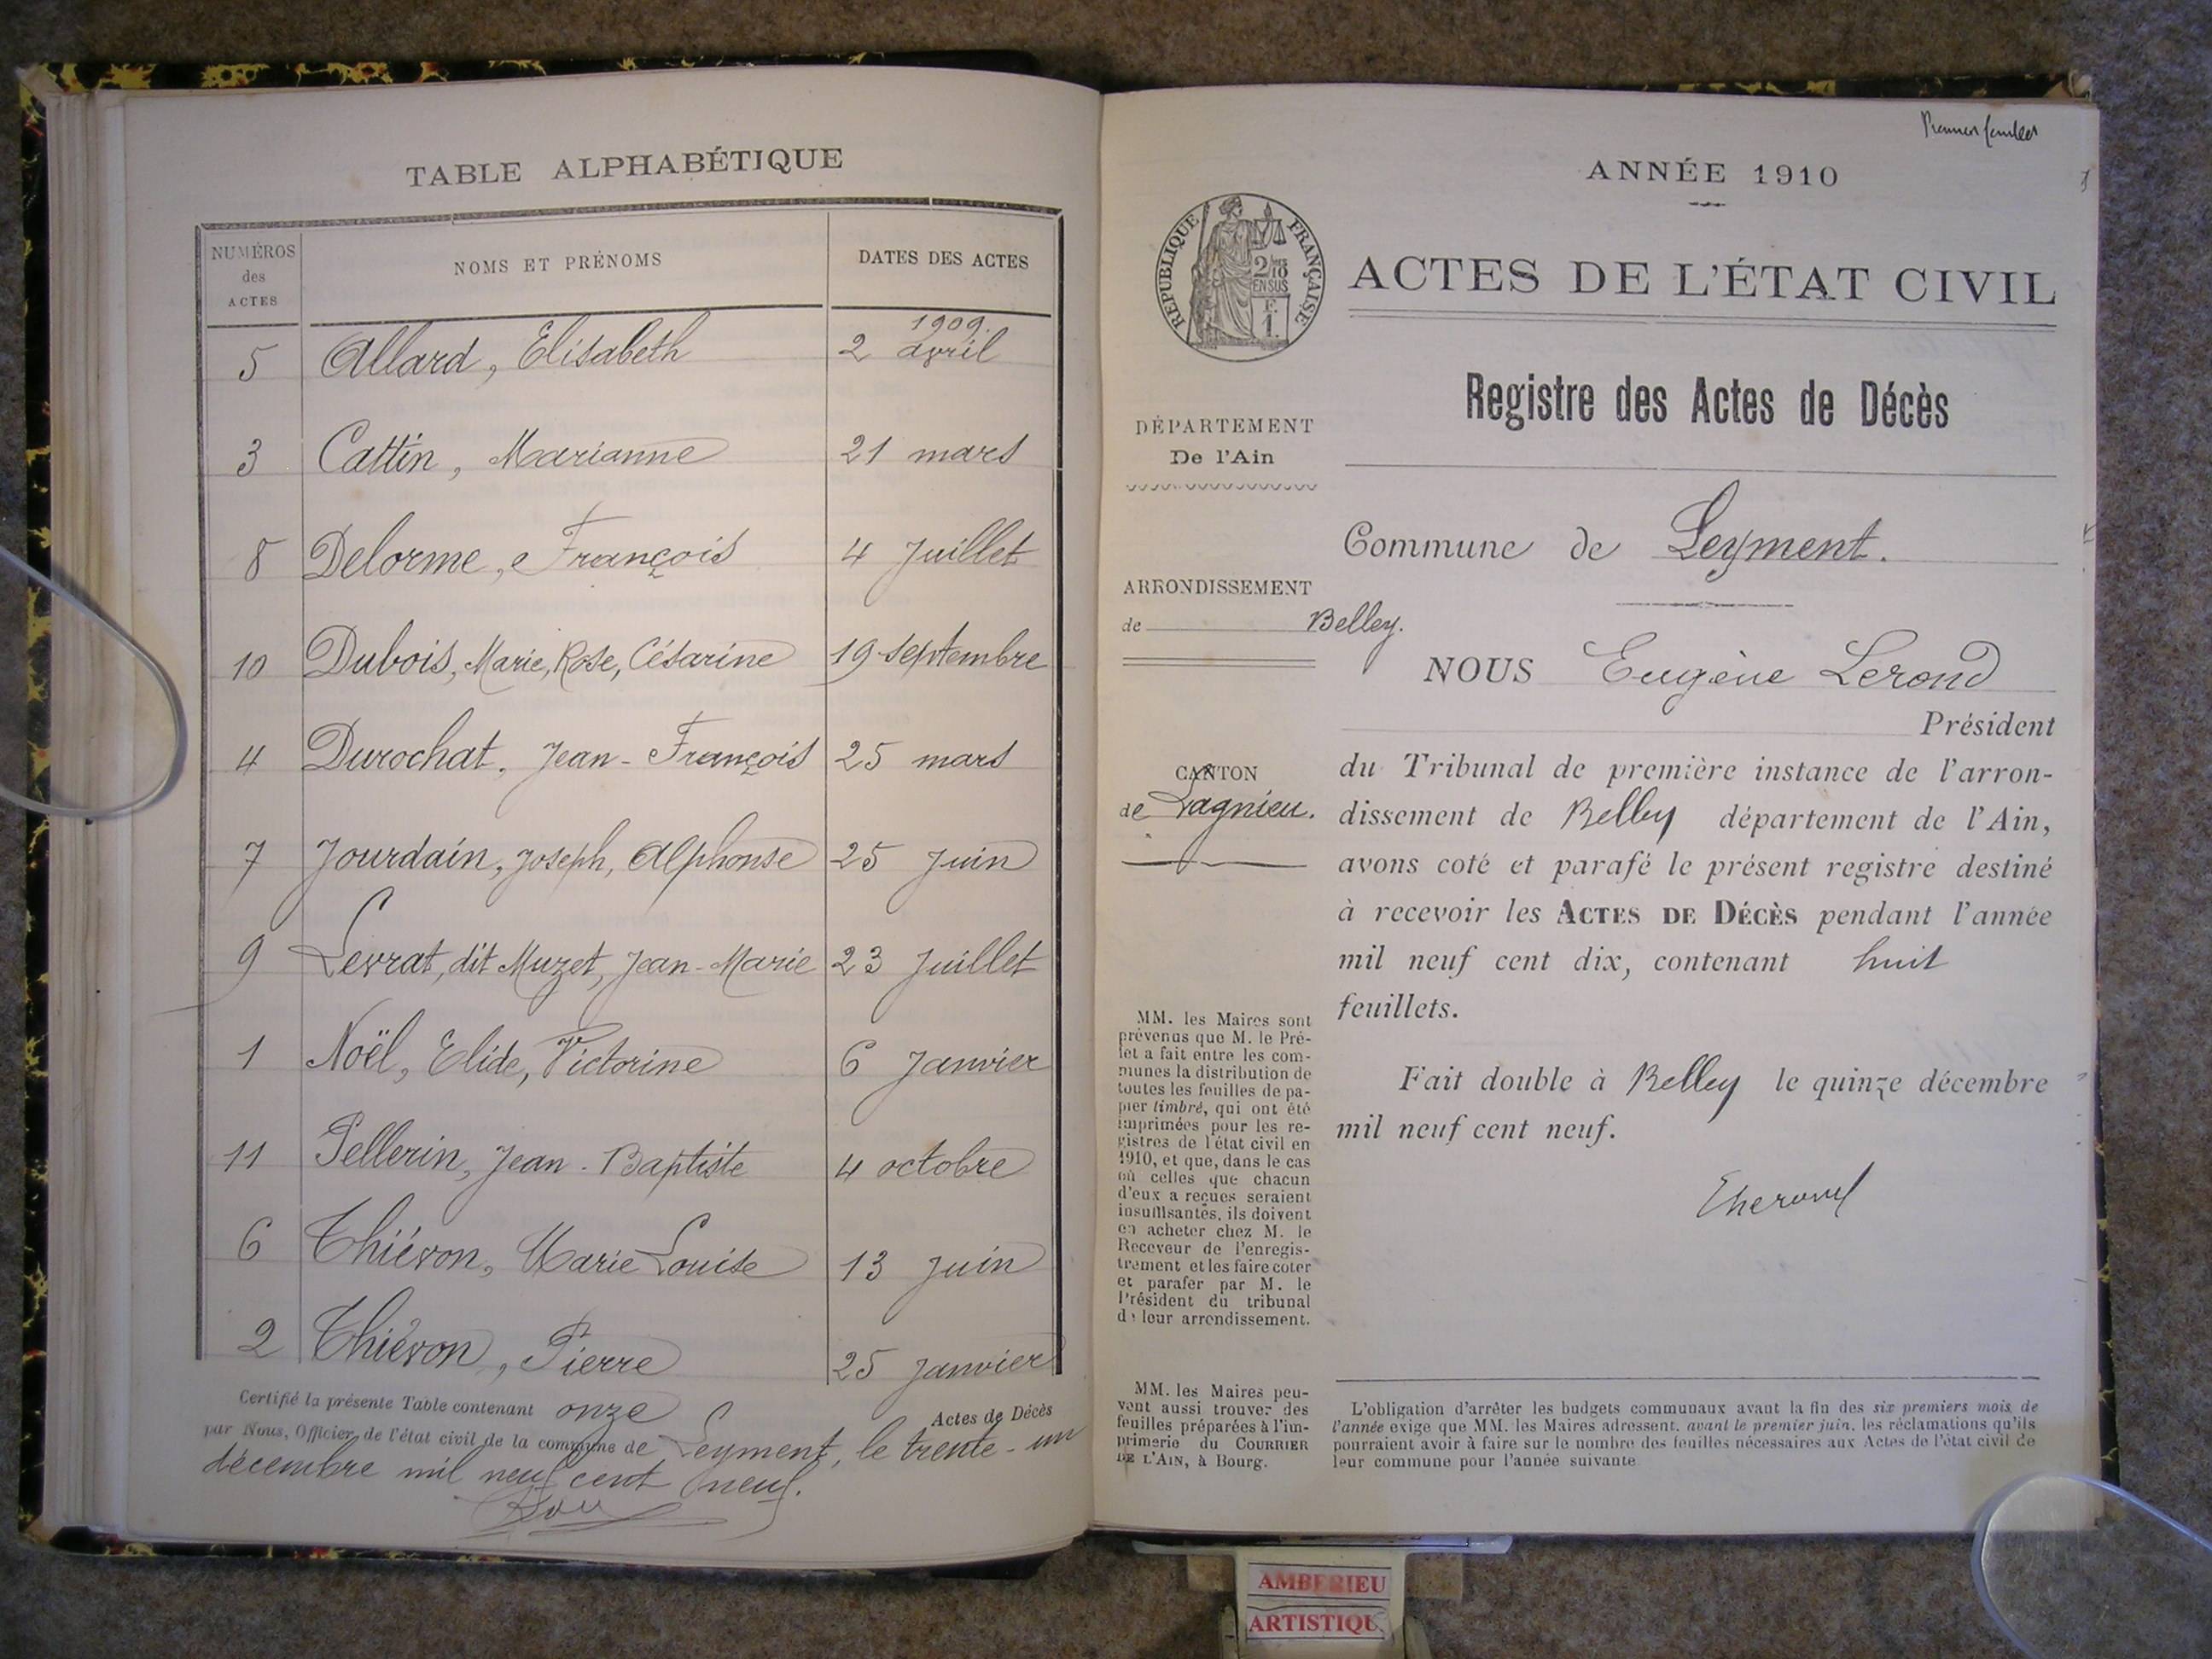 TABLE ALPHABÉTIQUE
NUMÉROS
des
ACTES
NOMS ET PRÉNOMS
DATES DES ACTES
1909.
5 Allard, Elisabeth 2 avril
3 Cattin, Marianne 21 mars
8 Delorme, François 4 Juillet
10 Dubois, Marie, Rose, Césarine 19 septembre
4 Durochat, Jean-François 25 mars
7 Jourdain, Joseph, Alphonse 25 Juin
9 Levrat, dit Muzet, Jean-Marie 23 Juillet
1 Noël, Elide, Victorine 6 Janvier
11 Pellerin, Jean-Baptiste 4 octobre
6 Thiévon, Marie Louise 13 Juin
2 Thiévon, Pierre 25 Janvier
Certifié la présente Table contenant onze Actes de Décès
par Nous, Officier de l'état civil de la commune de Leyment, le trente-un
décembre mil neuf cent neuf.
ANNÉE 1910
RÉPUBLIQUE FRANÇAISE
2/10
EN SUS
E.
1.
ACTES DE L'ÉTAT CIVIL
Registre des Actes de Décès
DÉPARTEMENT
De l'Ain
Commune de Leyment.
ARRONDISSEMENT
de Belley.
NOUS Eugène Lerond
Président
CANTON
de Lagnieu.
du Tribunal de première instance de l'arron-
dissement de Belley département de l'Ain,
avons coté et parafé le présent registre destiné
à recevoir les ACTES DE DÉCÈS pendant l'année
mil neuf cent dix, contenant huit
feuillets.
Fait double à Belley le quinze décembre
mil neuf cent neuf.
MM. les Maires sont
prévenus que M. le Pré-
fet a fait entre les com-
munes la distribution de
toutes les feuilles de pa-
pier timbré, qui ont été
imprimées pour les re-
gistres de l'état civil en
1910, et que, dans le cas
où celles que chacun
d'eux a reçues seraient
insuffisantes, ils doivent
en acheter chez M. le
Receveur de l'enregis-
trement et les faire coter
et parafer par M. le
Président du tribunal
de leur arrondissement.
MM. les Maires peu-
vent aussi trouver des
feuilles préparées à l'im-
primerie du COURRIER
DE L'AIN, à Bourg.
L'obligation d'arrêter les budgets communaux avant la fin des six premiers mois de
l'année exige que MM. les Maires adressent, avant le premier juin, les réclamations qu'ils
pourraient avoir à faire sur le nombre des feuilles nécessaires aux Actes de l'état civil de
leur commune pour l'année suivante
AMBERIEU
ARTISTIQU